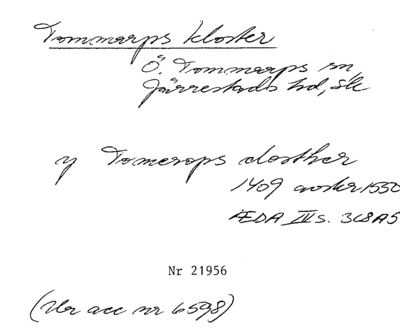 Tommarps kloster
Ö. Tommarps sn
Järrestads hd, Sk
y Tomerops closther
1409 avskr 1550
ÆDA III s. 368 A5
Nr 21956
(Ur acc nr 6598)